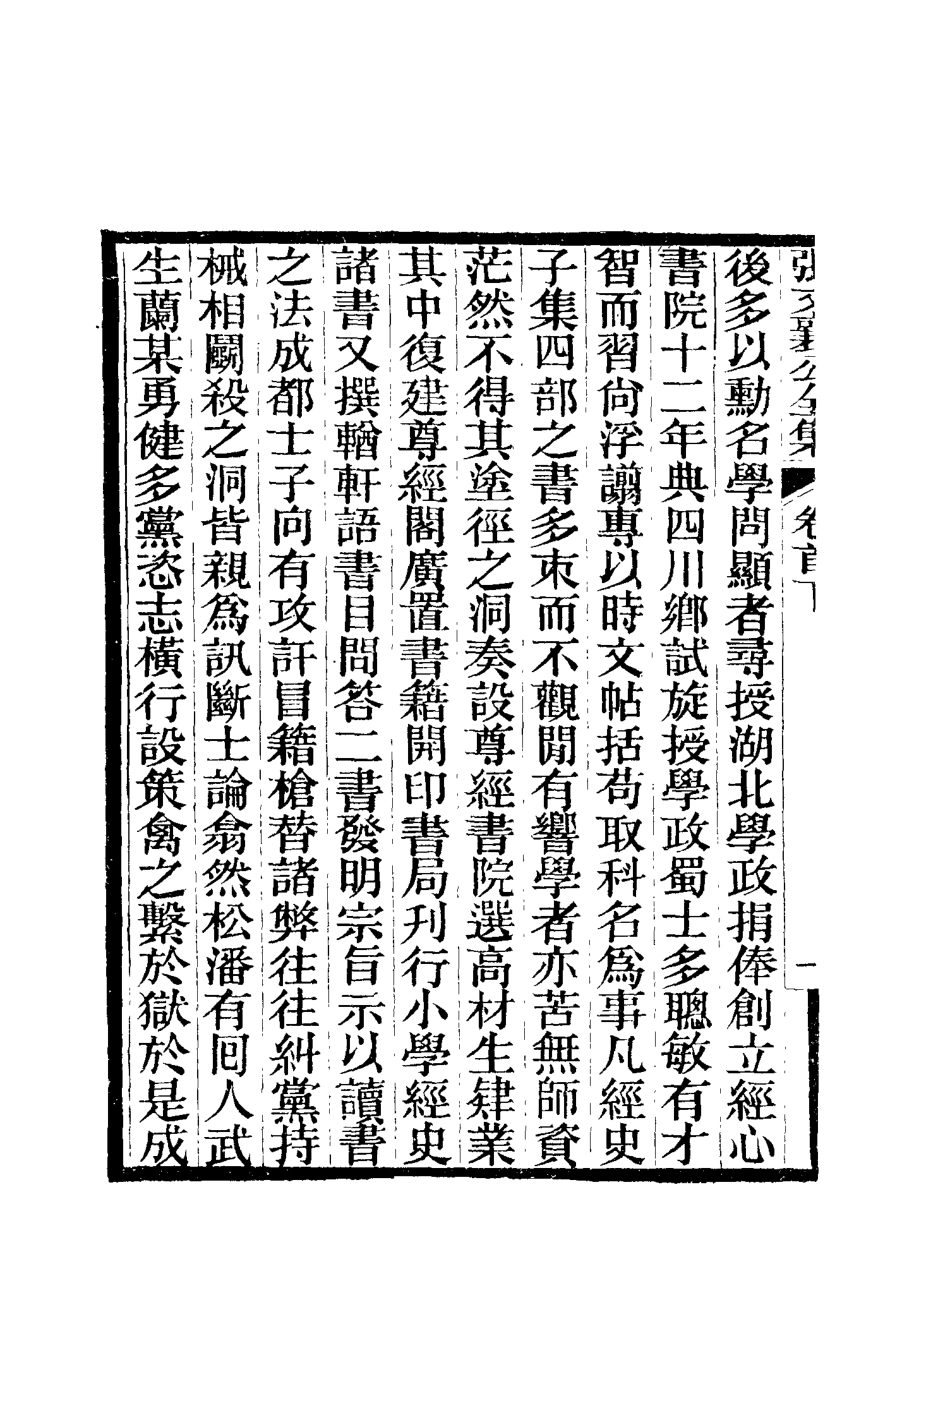 張文襄公全集 卷首下 一
後多以勳名學問顯者尋授湖北學政捐俸創立經心
書院十二年典四川鄉試旋授學政蜀士多聰敏有才
智而習尙浮譾專以時文帖括苟取科名爲事凡經史
子集四部之書多束而不觀閒有嚮學者亦苦無師資
茫然不得其塗徑之洞奏設尊經書院選高材生肄業
其中復建尊經閣廣置書籍開印書局刋行小學經史
諸書又撰輶軒語書目問答二書發明宗旨示以讀書
之法成都士子向有攻訐冒籍槍替諸弊往往糾黨持
械相鬭殺之洞皆親爲訊斷士論翕然松潘有囘人武
生蘭某勇健多黨恣志橫行設策禽之繫於獄於是成